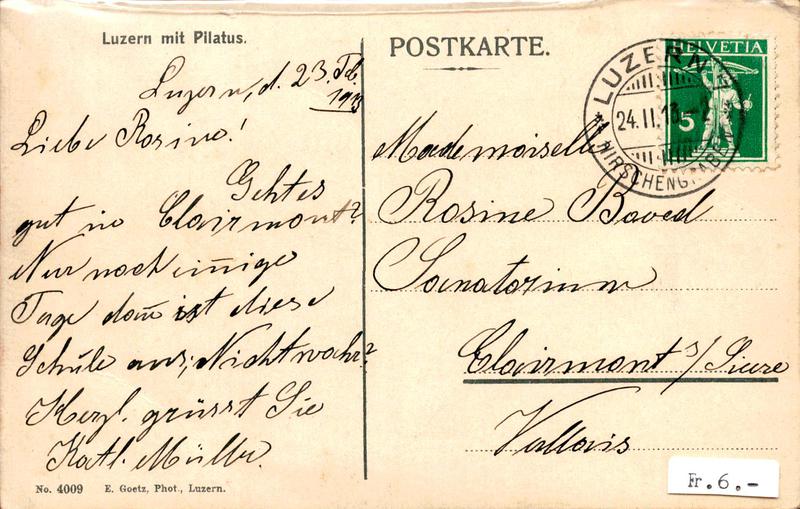 Luzern mit Pilatus.
Luzern, d. 23. Feb.
1913
Liebe Rosine!
Gehts
gut in Clairmont?
Nur noch einige
Tage dañ ist diese
Schule aus, Nicht wahr?
Herzl. grüsst Sie
Kath. Müller.
No. 4009 E. Goetz, Phot., Luzern.
POSTKARTE.
HELVETIA
5
LUZERN
24.II.13.-2
HIRSCHENGRABEN
Mademoiselle
Rosine Boved
Sanatorium
Clairmont s/Sierre
Vallais
Fr.6.-